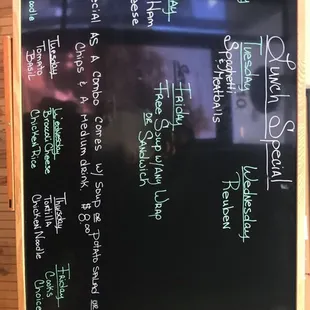 Lunch Special
Tuesday
Spaghetti
& / Meatballs
Wednesday
Reuben
Ham
Friday
Free Soup w/ Any Wrap
or Sandwich
As A Combo Comes w/ Soup or Potato Salad or
Chips & A Medium drink $8.00
Noodle
Tuesday
Tomato
Basil
Wednesday
Broccoli Cheese
Chicken Rice
Thursday
Tortilla
Chicken Noodle
Friday
Cooks
Choice